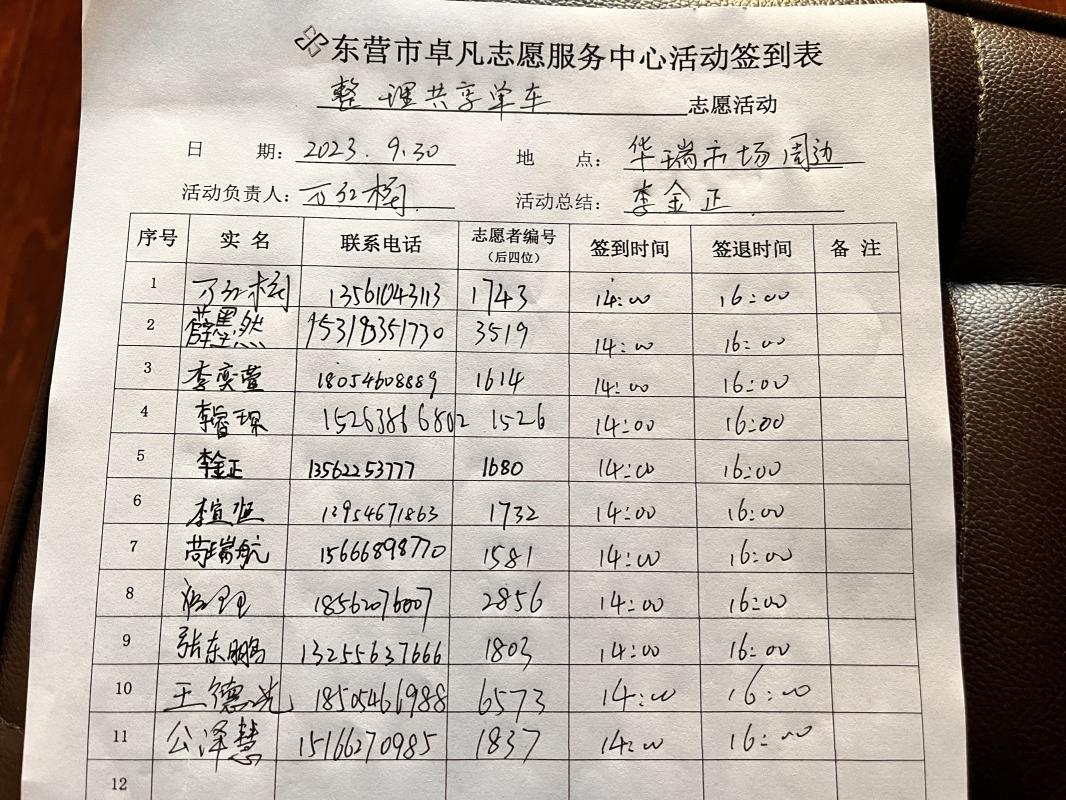 东营市卓凡志愿服务中心活动签到表
整理共享单车 志愿活动
日 期: 2023.9.30 地 点: 华瑞市场周边
活动负责人: 万红梅 活动总结: 李金正
序号 实名 联系电话 志愿者编号(后四位) 签到时间 签退时间 备注
1 万红梅 13561043113 1743 14:00 16:00
2 薛墨然 3519 14:00 16:00
3 李奕萱 18054608889 1614 14:00 16:00
4 李睿琛 15263866802 1526 14:00 16:00
5 李金正 13562253777 1680 14:00 16:00
6 李宜恒 13954671863 1732 14:00 16:00
7 苟瑞航 15666898770 1581 14:00 16:00
8 18562076007 2856 14:00 16:00
9 张东鹏 13255637666 1803 14:00 16:00
10 王德光 18505466988 6573 14:00 16:00
11 公泽慧 15166270985 1837 14:00 16:00
12